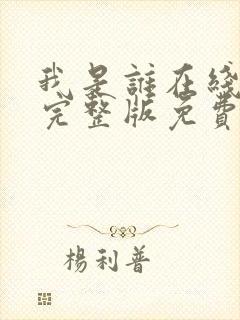 我是誰在綫
完整版免費
楊利普